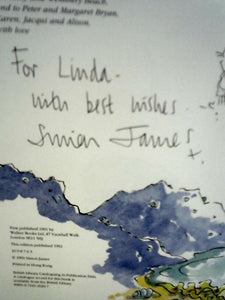 nd to Peter and Margaret Bryan,
Karen, Jacqui and Alison.
with love
For Linda -
with best wishes.
Simon James
First published 1991 by
Walker Books Ltd, 87 Vauxhall Walk
London SE11 5HJ
This edition published 1993
© 1991 Simon James
Printed in Hong Kong
British Library Cataloguing in Publication Data
A catalogue record for this book is
available from the British Library